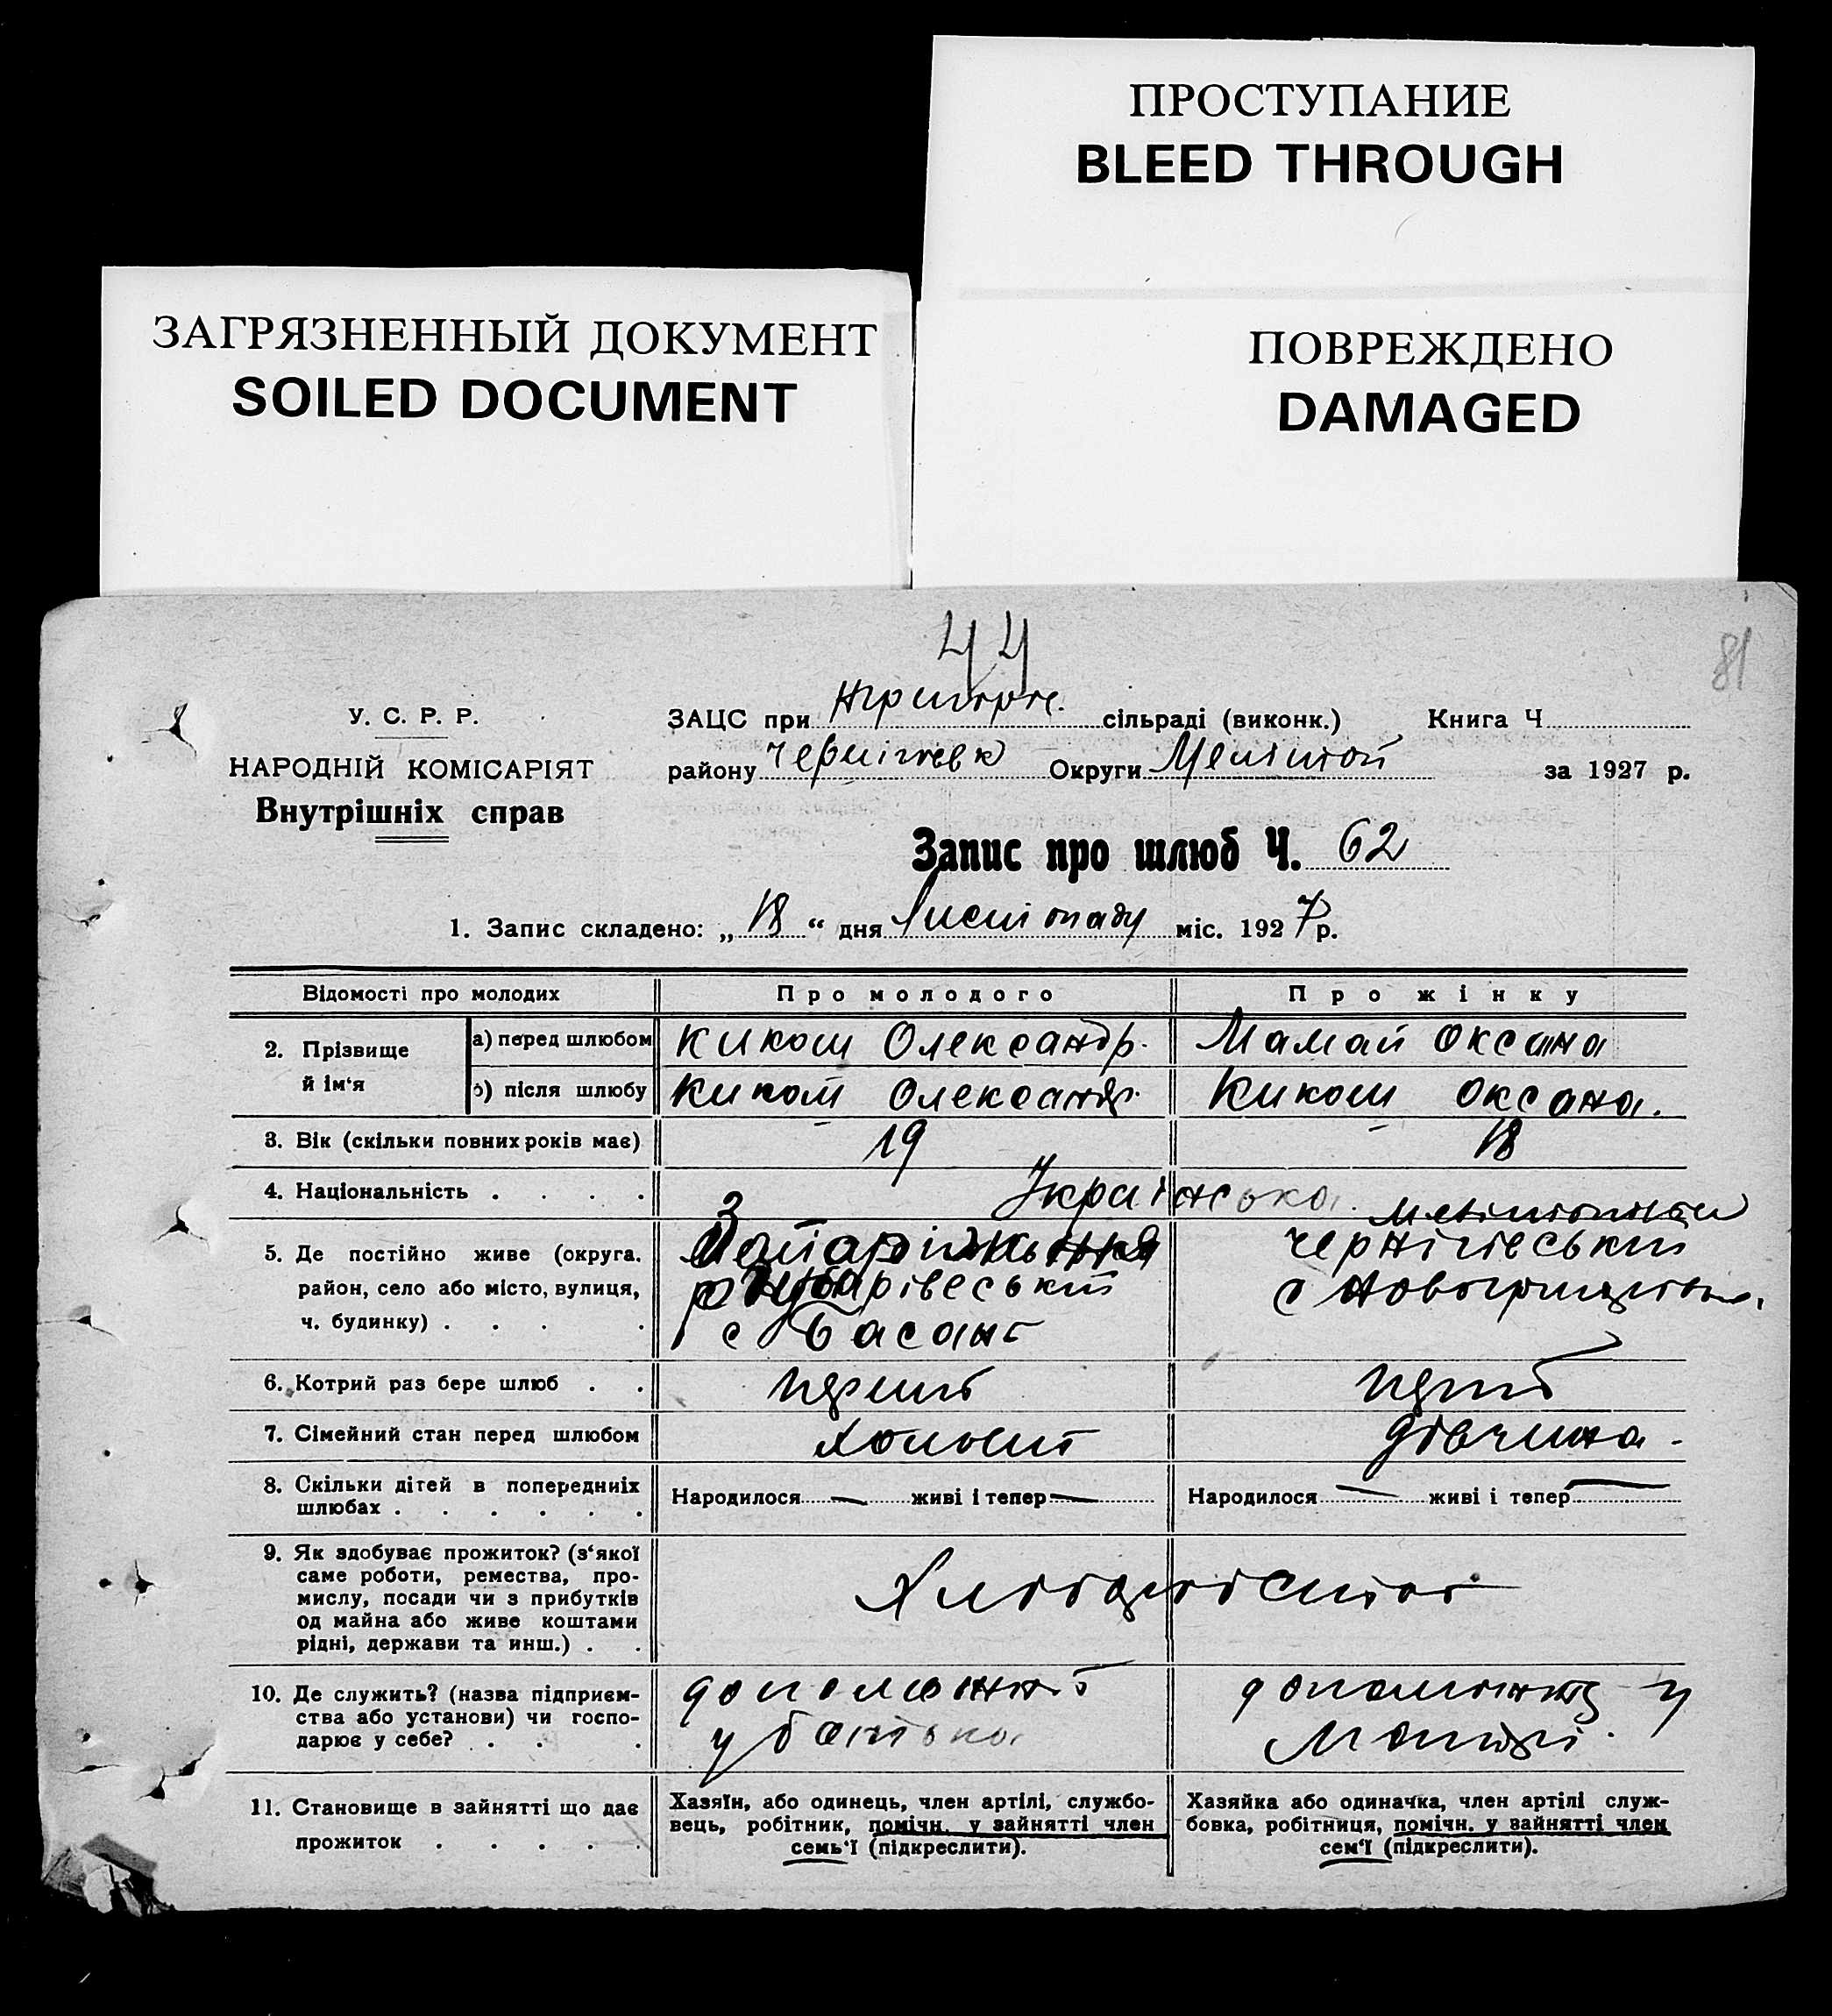 ПРОСТУПАНИЕ
BLEED THROUGH
ЗАГРЯЗНЕННЫЙ ДОКУМЕНТ
SOILED DOCUMENT
ПОВРЕЖДЕНО
DAMAGED
44
81
У. С. Р. Р.
НАРОДНІЙ КОМІСАРІЯТ
Внутрішніх справ
ЗАЦС при сільраді (виконк.) Книга Ч
району Чернігівськ Округи Меліітоп за 1927 р.
Запис про шлюб Ч. 62
1. Запис складено: „ 18 “ дня Листопаду міс. 1927 р.
Відомості про молодих
Про молодого
Про жінку
2. Прізвище й ім‘я
а) перед шлюбом Кикош Олександр. Мамай Оксана
б) після шлюбу Кикош Олександр. Кикош Оксана.
3. Вік (скільки повних років має) 19 18
4. Національність . . . . Українська.
5. Де постійно живе (округа,
район, село або місто, вулиця,
ч. будинку) . . . .
с Басань
Чернігівський
с
6. Котрий раз бере шлюб . . перший перший
7. Сімейний стан перед шлюбом холостий дівчина.
8. Скільки дітей в попередниіх
шлюбах . . . . . .
Народилося — живі і тепер —
Народилося — живі і тепер —
9. Як здобуває прожиток? (з‘якої
саме роботи, ремества, про-
мислу, посади чи з прибутків
од майна або живе коштами
рідні, держави та инш.) . .
10. Де служить? (назва підприєм-
ства або установи) чи госпо-
дарює у себе? . . .
у батька
у
11. Становище в зайнятті що дає
прожиток . . . . .
Хазяїн, або одинець, член артілі, службо-
вець, робітник, помічн. у зайнятті член
семь‘ї (підкреслити).
Хазяйка або одиначка, член артілі служ-
бовка, робітниця, помічн. у зайнятті член
сем‘ї (підкреслити).